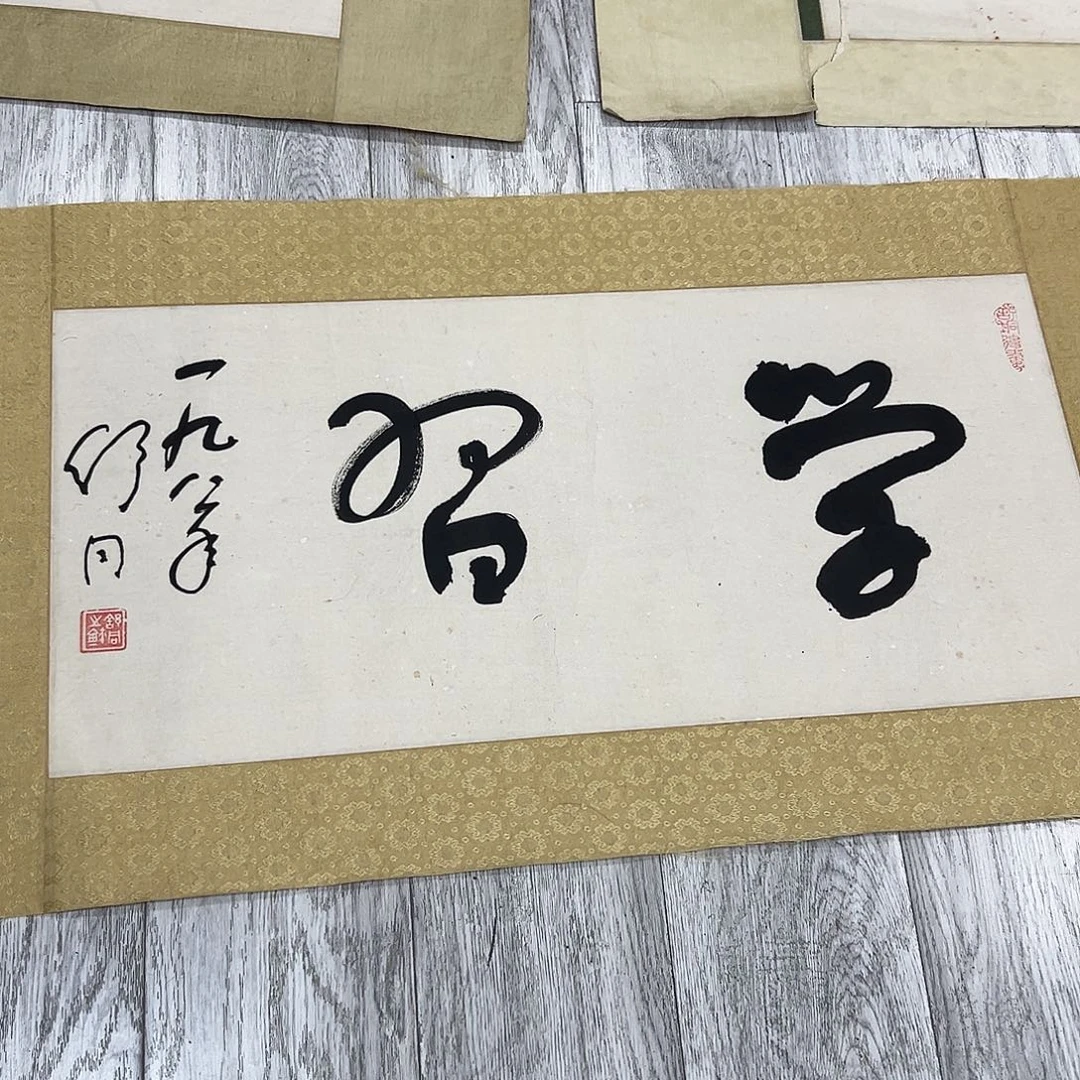 学習
一九八年
舒同
舒同之鉨